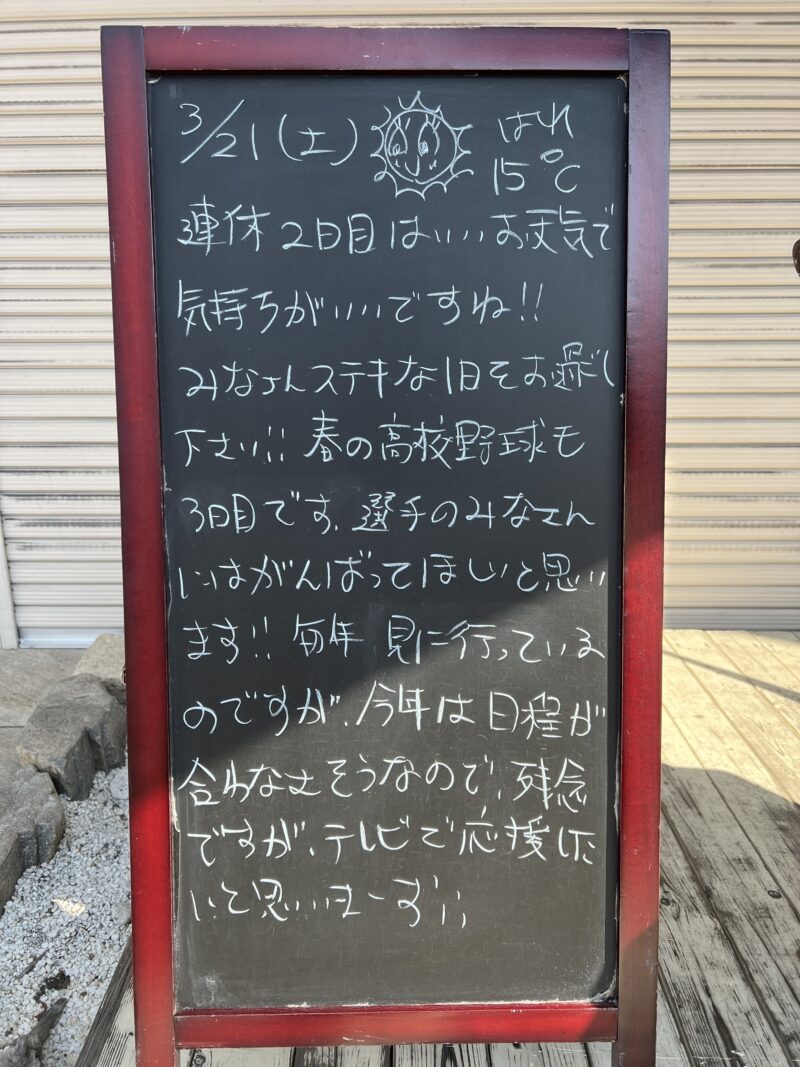 3/21(土) はれ
15℃
連休2日目はいいお天気で
気持ちがいいですね!!
みなさんステキな1日をお過ごし
下さい!! 春の高校野球も
3日目です。選手のみなさん
にはがんばってほしいと思い
ます!! 毎年 見に行っている
のですが、今年は日程が
合わなさそうなので、残念
ですが、テレビで応援した
いと思いまーす!!